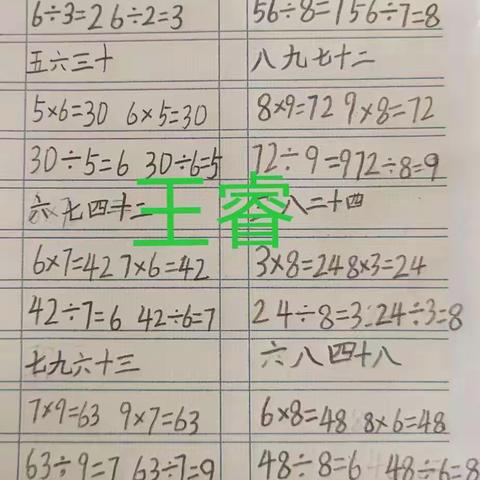 6÷3=2 6÷2=3
五六三十
5×6=30 6×5=30
30÷5=6 30÷6=5
六七四十二
6×7=42 7×6=42
42÷7=6 42÷6=7
七九六十三
7×9=63 9×7=63
63÷9=7 63÷7=9
56÷8=7 56÷7=8
八九七十二
8×9=72 9×8=72
72÷9=9 72÷8=9
八二十四
3×8=24 8×3=24
24÷8=3 24÷3=8
六八四十八
6×8=48 8×6=48
48÷8=6 48÷6=8
王睿